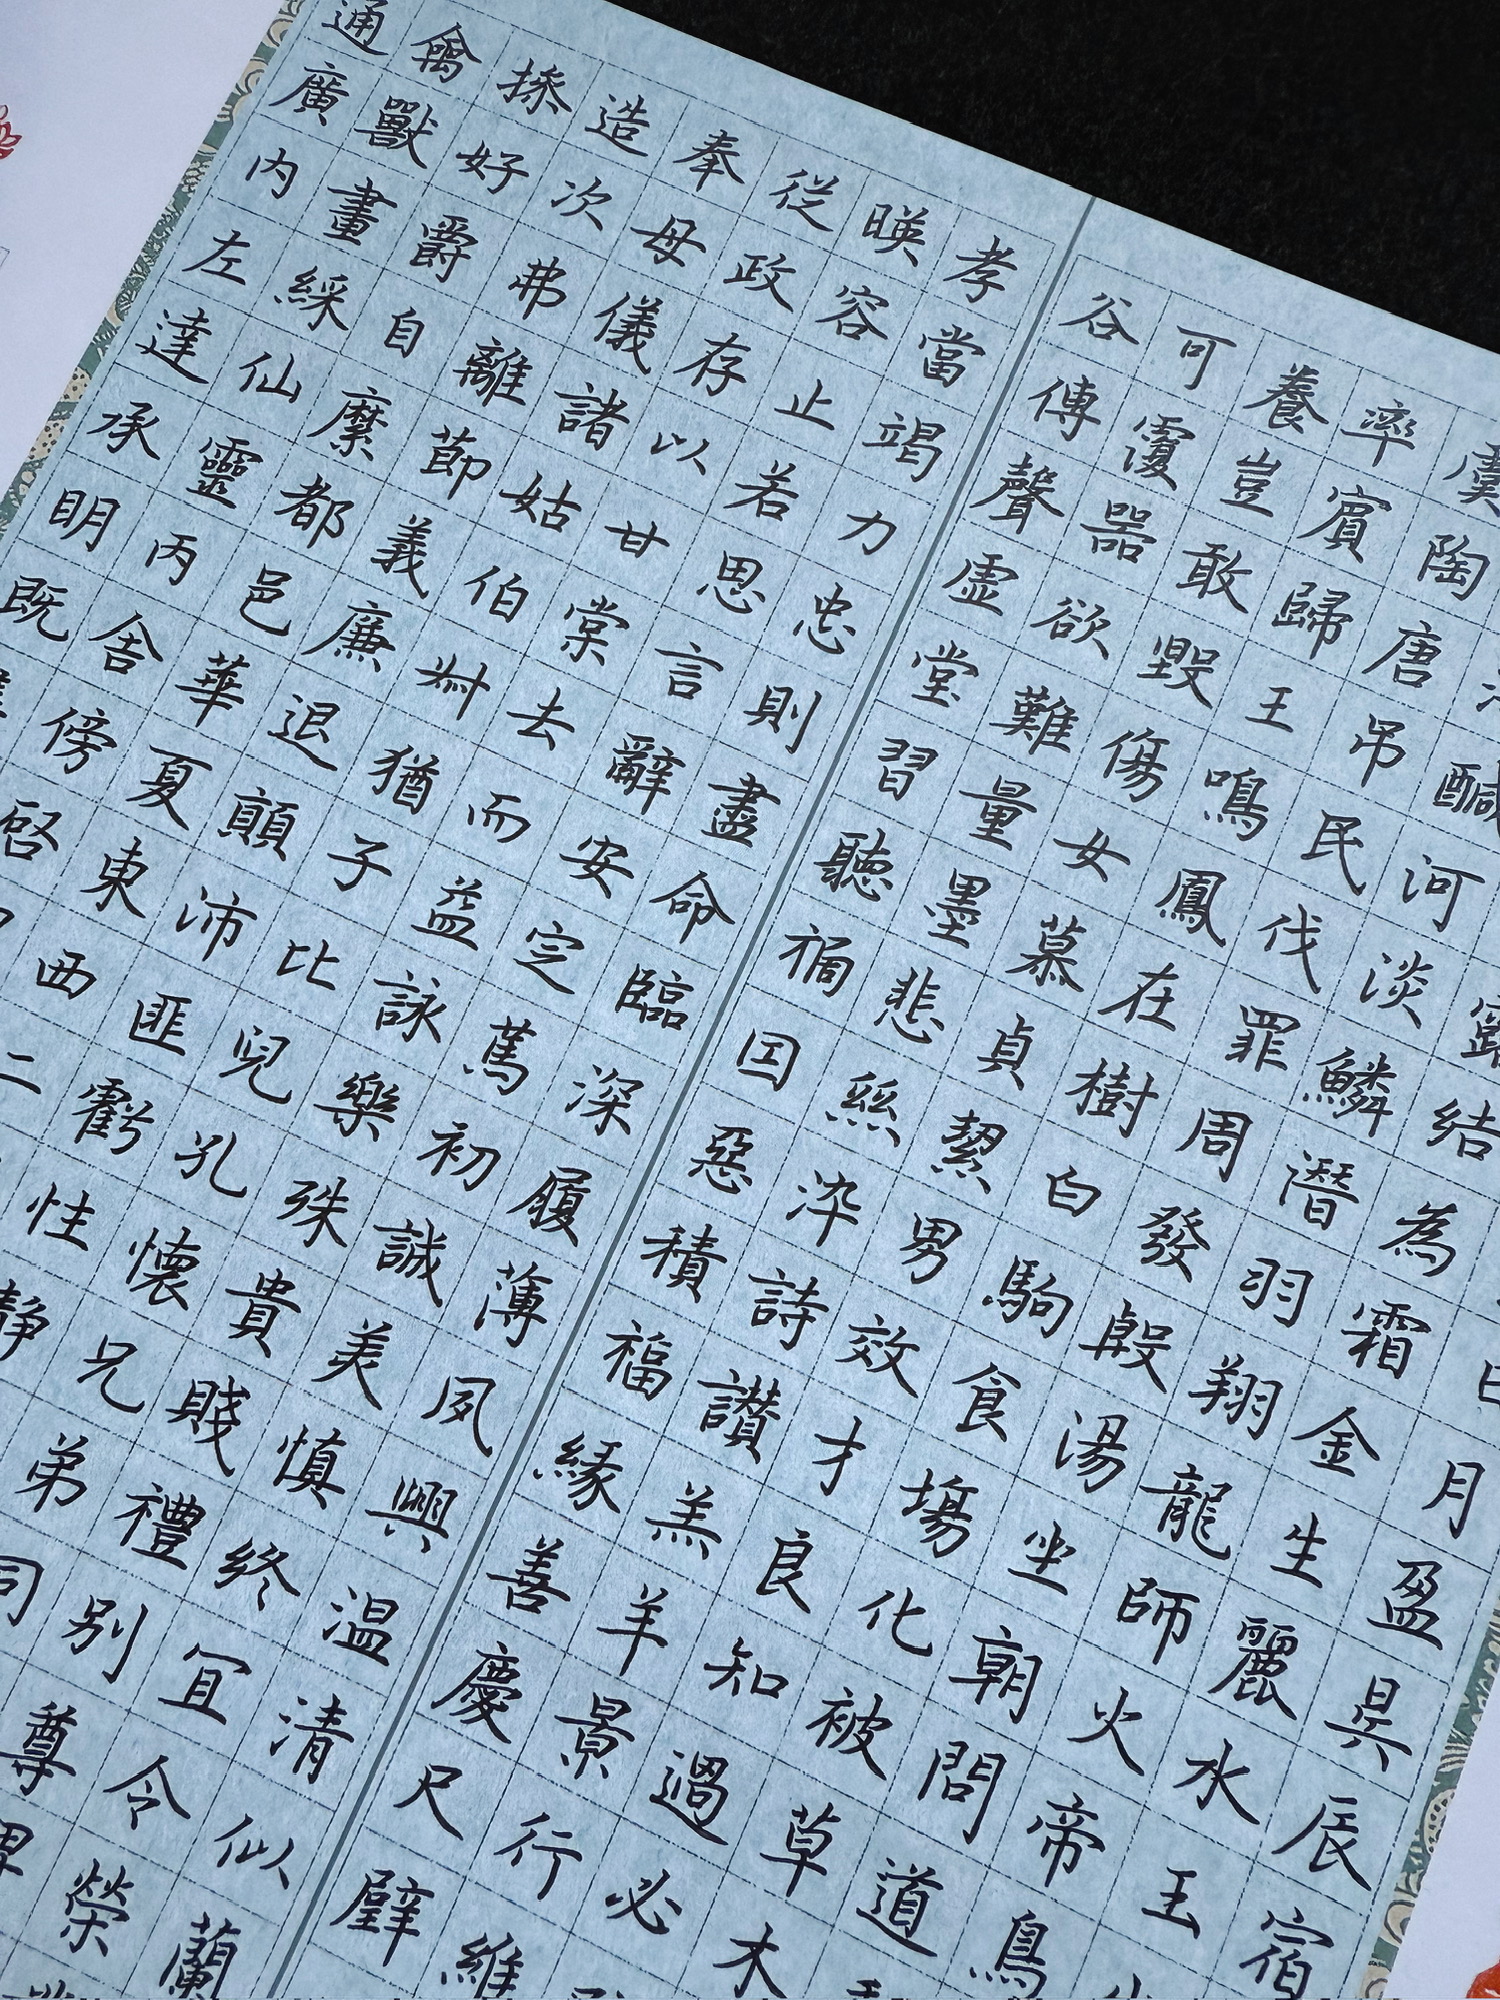 日月盈昃辰宿
露結為霜金生麗水玉
鹹河淡鱗潛羽翔龍師火帝鳥
虞陶唐吊民伐罪周發殷湯坐朝問道
率賓歸王鳴鳳在樹白駒食場化被草木
養豈敢毀傷女慕貞絜男效才良知過必
可覆器欲難量墨悲絲染詩讚羔羊景行維
谷傳聲虛堂習聽禍因惡積福緣善慶尺璧
孝當竭力忠則盡命臨深履薄夙興温清似蘭
暎容止若思言辭安定篤初誠美慎終宜令榮
從政存以甘棠去而益詠樂殊貴賤禮別尊卑
奉母儀諸姑伯叔猶子比兒孔懷兄弟同
造次弗離節義廉退顛沛匪虧性靜
操好爵自縻都邑華夏東西二
禽獸畫綵仙靈丙舍傍啓
通廣內左達承明既